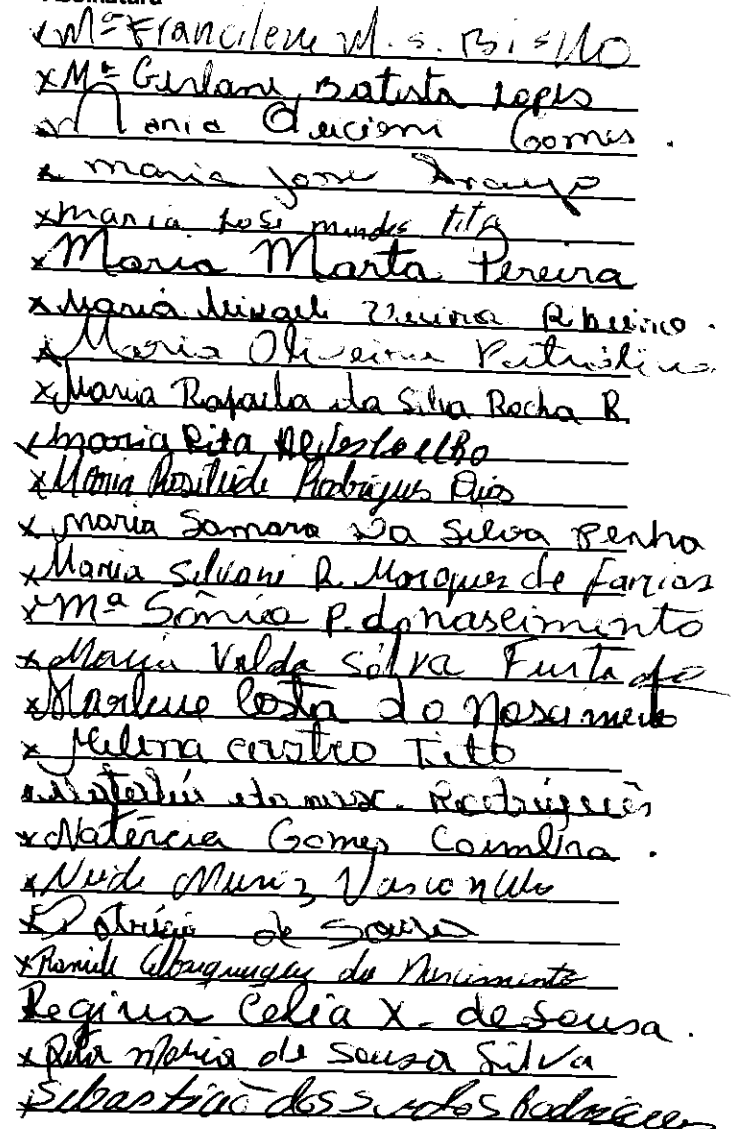 Assinatura
x Mª Francilene M. S. Bislo
x Mª Gerlani Batista Lopes
x Maria Gleiciani Gomes.
x maria Jose Araujo
x maria Jose mendes tito
x Maria Marta Pereira
x Maria Mikaeli Vieira Ribeiro.
x Maria Oliveira
x Maria Rafaela da Silva Rocha R.
x maria Rita Coelho
x Maria Rosileide Rodrigues Dias
x maria Samara Da Silva Penha
x Maria Silvani R. Marques de farias
x Mª Sônia P. do nascimento
x Maria Valda Silva Furtado
x Marlene Costa do Nascimento
x Milena castro Tito
x Rodrigues
x Natércia Gomes Coimbra.
x Neide Muniz Vasconcelos
x Patrícia de Sousa
x Raniele Albuquerque do Nascimento
Regina Célia X. de Sousa.
x Rita Maria de Sousa Silva
x Sebastião dos Santos Rodrigues